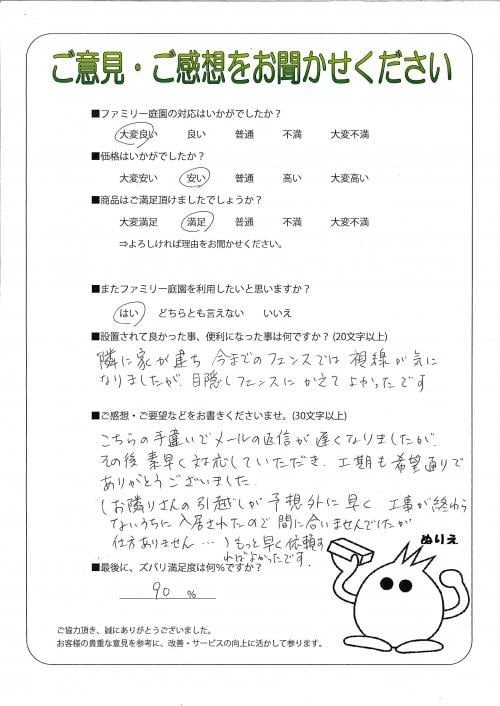 ご意見・ご感想をお聞かせください
■ファミリー庭園の対応はいかがでしたか？
大変良い 良い 普通 不満 大変不満
■価格はいかがでしたか？
大変安い 安い 普通 高い 大変高い
■商品はご満足頂けましたでしょうか？
大変満足 満足 普通 不満 大変不満
⇒よろしければ理由をお聞かせください。
■またファミリー庭園を利用したいと思いますか？
はい どちらとも言えない いいえ
■設置されて良かった事、便利になった事は何ですか？(20文字以上)
隣に家が建ち 今までのフェンスでは 視線が気に
なりましたが、目隠しフェンスに かえて よかったです
■ご感想・ご要望などをお書きくださいませ。(30文字以上)
こちらの手違いでメールの返信が遅くなりましたが、
その後 素早く対応していただき、工期も希望通りで
ありがとうございました。
(お隣りさんの引越しが予想外に早く 工事が終わら
ないうちに入居されたので 間に合いませんでしたが
仕方ありません…)もっと早く依頼す
ればよかったです.
■最後に、ズバリ満足度は何％ですか？
90 %
ぬりえ
ご協力頂き、誠にありがとうございました。
お客様の貴重な意見を参考に、改善・サービスの向上に活かして参ります。